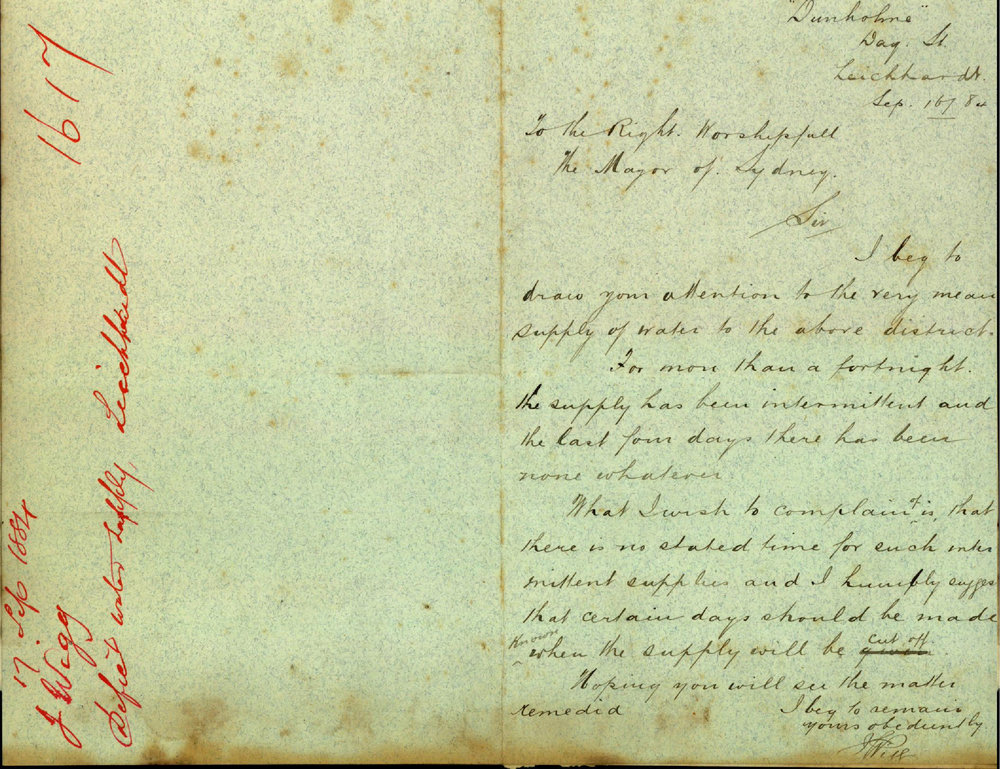 1617
17 Sep 1884
J Wigg
Defict water supply, Leichhardt
"Dunholme"
Day. St.
Leichhardt.
Sep. 16/84
To the Right. Worshipfull
the Mayor of. Sydney.
Sir
I beg to
draw your attention to the very mean
supply of water to the above district.
For more than a fortnight.
the supply has been intermittent and
the last four days there has been
none whatever
What I wish to complain of is, that
there is no stated time for such inter
mittent supplies and I humbly sugges
that certain days should be made
known when the supply will be cut off given.
Hoping you will see the matter
remedid
I beg to remain
yours obediently
J Wigg